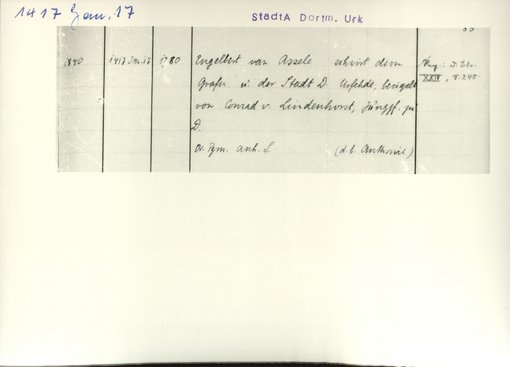 1417 Jan. 17
StadtA Dortm. Urk
1840 1417 Jan. 17 1780 Engelbert van Assele schwört dem
Grafen u. der Stadt D. Urfehde, besiegelt
von Conrad v. Lindenhorst, Jungff. zu
D.
Or. Pgm. anh. S. (d. b. Anthonii)
Reg.: D. Btr.
XXIV, S. 248